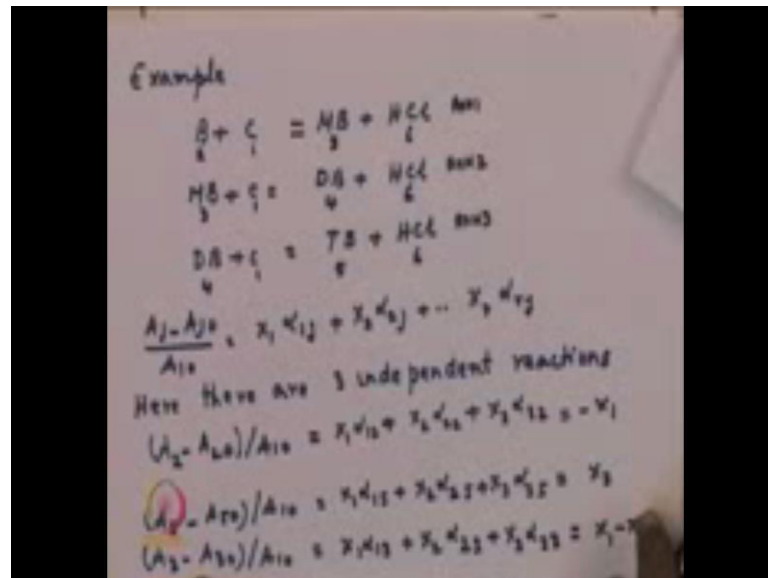 Example
B + C = MB + HCl Rxn1
2 1 3 6
MB + C = DB + HCl Rxn2
3 1 4 6
DB + C = TB + HCl Rxn3
4 1 5 6
(Aj - Aj0)/A10 = X1 α1j + X2 α2j + .. Xr αrj
Here there are 3 independent reactions
(A2 - A20)/A10 = X1α12 + X2α22 + X3α32 = -X1
(A5 - A50)/A10 = X1α15 + X2α25 + X3α35 = X3
(A3 - A30)/A10 = X1α13 + X2α23 + X3α33 = X1 -